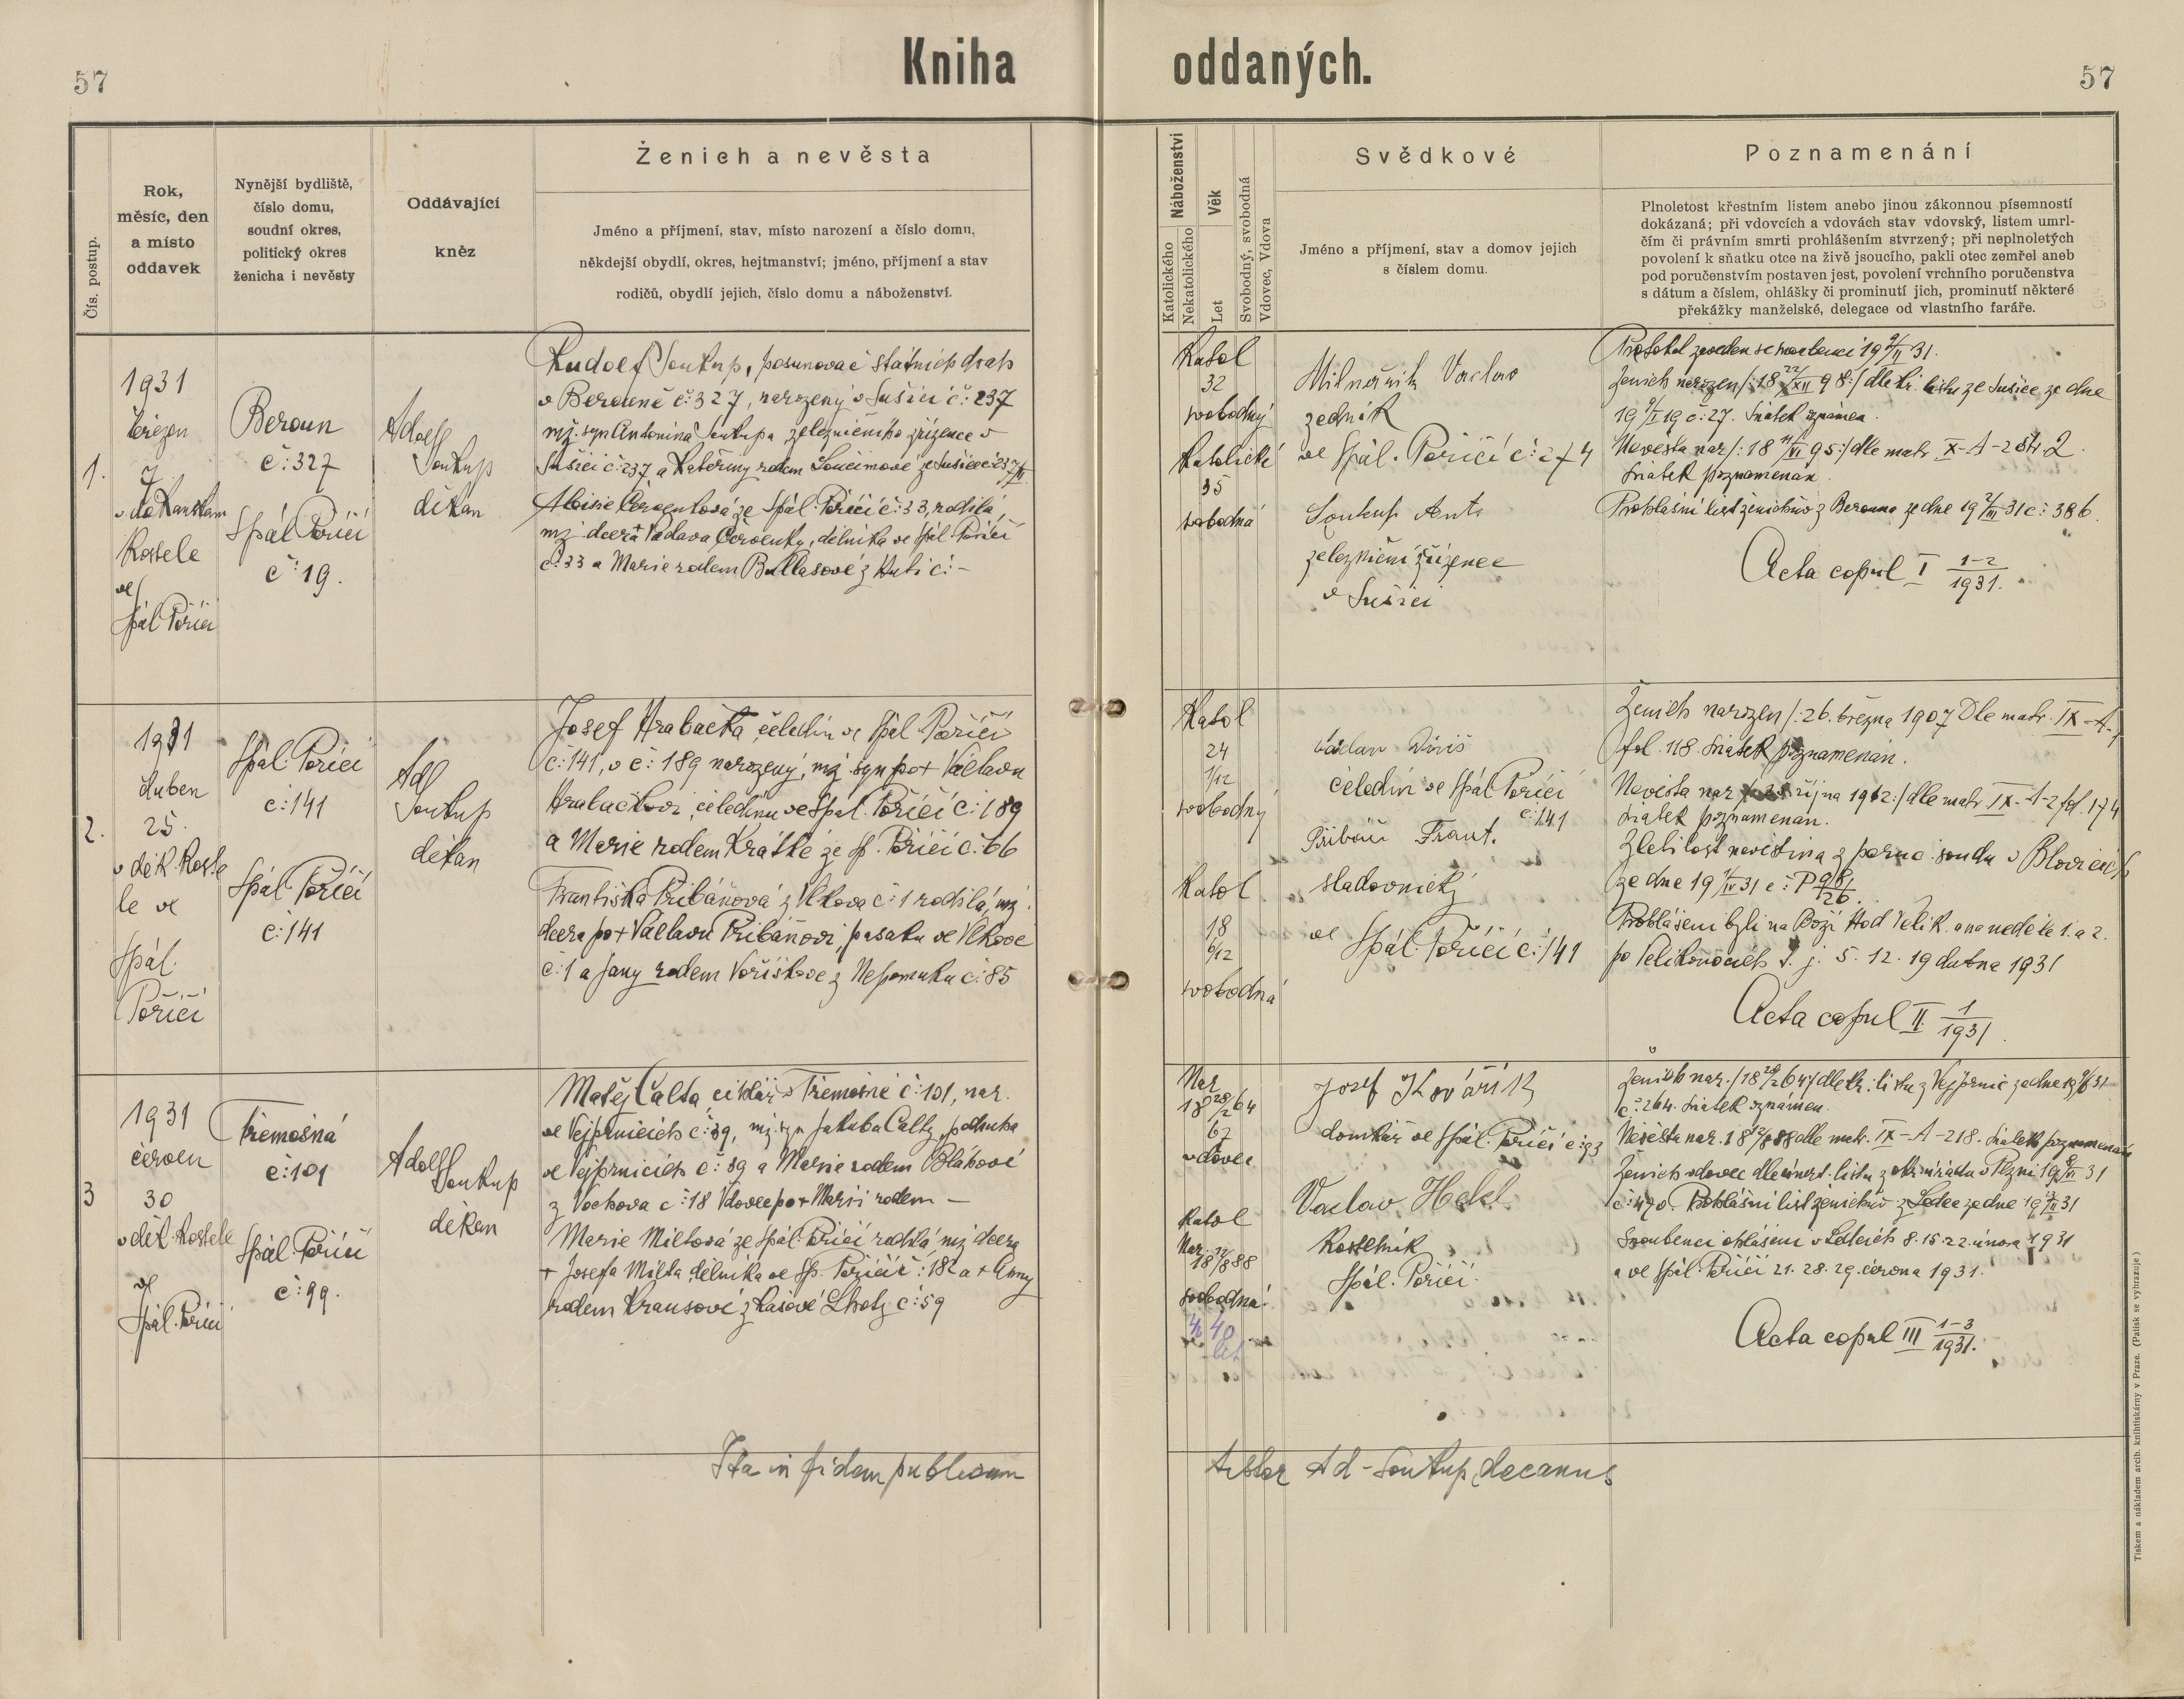 57
Kniha oddaných.
57
Čís. postup.
Rok,
měsíc, den
a místo
oddavek
Nynější bydliště,
číslo domu,
soudní okres,
politický okres
ženicha i nevěsty
Oddávající
kněz
Ženich a nevěsta
Jméno a příjmení, stav, místo narození a číslo domu,
někdejší obydlí, okres, hejtmanství; jméno, příjmení a stav
rodičů, obydlí jejich, číslo domu a náboženství.
Náboženství
Katolického
Nekatolického
Věk
Let
Svobodný, svobodná
Vdovec, Vdova
Svědkové
Jméno a příjmení, stav a domov jejich
s číslem domu.
Poznamenání
Plnoletost křestním listem anebo jinou zákonnou písemností
dokázaná; při vdovcích a vdovách stav vdovský, listem umrl-
čím či právním smrti prohlášením stvrzený; při neplnoletých
povolení k sňatku otce na živě jsoucího, pakli otec zemřel aneb
pod poručenstvím postaven jest, povolení vrchního poručenstva
s dátum a číslem, ohlášky či prominutí jich, prominutí některé
překážky manželské, delegace od vlastního faráře.
1.
1931
březen
7
v děkanském
Kostele
ve
Spál. Poříčí
Beroun
č: 327
Spál Poříčí
č: 19.
Adolf
Soukup
děkan
Rudolf Soukup, posunovač státních drah
v Berouně č: 327, narozený v Sušici č: 237
mž. syn Antonína Soukupa železničního zřízence v
Sušici č: 237 a Kateřiny rodem
Aloisie Červenková ze Spál. Poříčí č: 33, rodilá,
mž dcera + Václava Červenky, dělníka ve Spál. Poříčí
č: 33 a Marie rodem z Huti č: -
Katol
32
svobodný
Katolické
35
svobodná
Václav
zedník
ve Spál. Poříčí č: 274
Soukup Ant.
železniční zřízenec
v Sušici
Protokol zaveden se snoubenci 19 31.
Ženich narozen /: 18 22/XII 98 :/ dle kř. listu ze Sušice ze dne
19 /I 19 č: 27. Sňatek oznámen.
Nevěsta nar /: 18 /VI 95 :/ dle matr X-A-2 str 2.
Sňatek poznamenán.
Prohlášní list ženichův z Berouna ze dne 19 2/III 31 č: 386.
Acta copul I 1-2/1931.
2.
1931
duben
25.
v děk. Koste
le ve
Spál.
Poříčí
Spál. Poříčí
č: 141
Spál. Poříčí
č: 141
Ad
Soukup
děkan
Josef Hrabačka, čeledín ve Spál Poříčí
č: 141, v č: 189 narozený, mž. syn po + Václavu
Hrabačkovi, čeledínu ve Spál. Poříčí č: 189
a Marie rodem Krátké ze Sp. Poříčí č: 66
Františka Pribáňová z Vlkova č: 1 rodilá, mž.
dcera po + Václavu Pribáňovi, pasáku ve Vlkově
č: 1 a Jany rodem Voříškové z Nepomuku č: 85
Katol
24
1/12
svobodný
Katol
18
6/12
svobodná
Václav Diviš
čeledín ve Spál Poříčí
č: 141
Přibáň Frant.
sladovnický
ve
Spál. Poříčí č: 141
Ženich narozen /: 26. března 1907 Dle matr. IX-A-
fol. 118. Sňatek poznamenán.
Nevěsta nar října 1912 :/ dle matr IX-A-2 fol. 174
Sňatek poznamenán.
Zletilost nevěstina z soudu v Blovicích
ze dne 19 /IV 31 č: P 98/26.
Prohlášeni byli na Boží Hod Velik. a na neděle 1. a 2.
po Velikonocích t. j. 5. 12. 19 dubna 1931
Acta copul II 1/1931
3
1931
červen
30
v děk. Kostele
ve
Spál. Poříčí
Třemošná
č: 101
Spál. Poříčí
č: 99.
Adolf
Soukup
děkan
Matěj Calta, cihlář v Třemošné č: 101, nar.
ve Vejprnicích č: 39, mž. syn Jakuba Calty, podruha
ve Vejprnicích č: 39 a Marie rodem Bláhové
z Vochova č: 18 Vdovec po + Marii rodem -
Marie Miltová ze Spál. Poříčí rodilá, mž dcera
+ Josefa Milta dělníka ve Sp. Poříčí č: 182 a + Anny
rodem Krausové z Lhoty č: 59
Nar
18 28/2 64
67
vdovec
Katol
Nar.
18 12/8 88
svobodná.
40
let
Josef Kovářík
domkář ve Spál. Poříčí č: 93
Václav Hekl
Kostelník
Spál. Poříčí.
Ženich nar. /: 18 28/2 64 :/ dle kř. listu z Vejprnic ze dne
č: 264. Sňatek oznámen.
Nevěsta nar. 18 12/8 88 dle matr. IX-A-218. Sňatek poznamenán
Ženich vdovec dle úmrt. listu z úřadu v Plzni 19 31
č: 470. Prohlášní list ženichův z Ledec ze dne 19 31
Snoubenci ohlášeni v Ledcích 8. 15. 22. února 1931
a ve Spál. Poříčí 21. 28. 29. června 1931.
Acta copul III 1-3/1931.
Ita in fidem publicam
testor Ad-Soukup decanus
Tiskem a nákladem arcib. knihtiskárny v Praze. (Patisk se vyhrazuje)